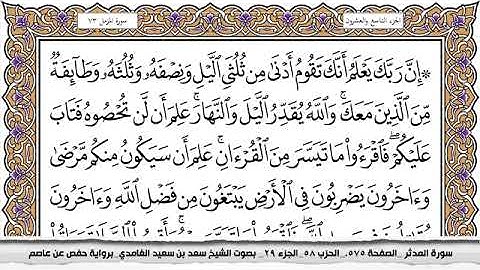 الجزء التاسع والعشرون
سورة المزمل ٧٣
* إِنَّ رَبَّكَ يَعْلَمُ أَنَّكَ تَقُومُ أَدْنَىٰ مِن ثُلُثَيِ ٱلَّيْلِ وَنِصْفَهُۥ وَثُلُثَهُۥ وَطَآئِفَةٌ
مِّنَ ٱلَّذِينَ مَعَكَۚ وَٱللَّهُ يُقَدِّرُ ٱلَّيْلَ وَٱلنَّهَارَۚ عَلِمَ أَن لَّن تُحْصُوهُ فَتَابَ
عَلَيْكُمْۖ فَٱقْرَءُوا۟ مَا تَيَسَّرَ مِنَ ٱلْقُرْءَانِۚ عَلِمَ أَن سَيَكُونُ مِنكُم مَّرْضَىٰ
وَءَاخَرُونَ يَضْرِبُونَ فِى ٱلْأَرْضِ يَبْتَغُونَ مِن فَضْلِ ٱللَّهِۙ وَءَاخَرُونَ
سورة المدثر _الصفحة ٥٧٥_ الحزب ٥٨ _الجزء ٢٩_ بصوت الشيخ سعد بن سعيد الغامدي _برواية حفص عن عاصم